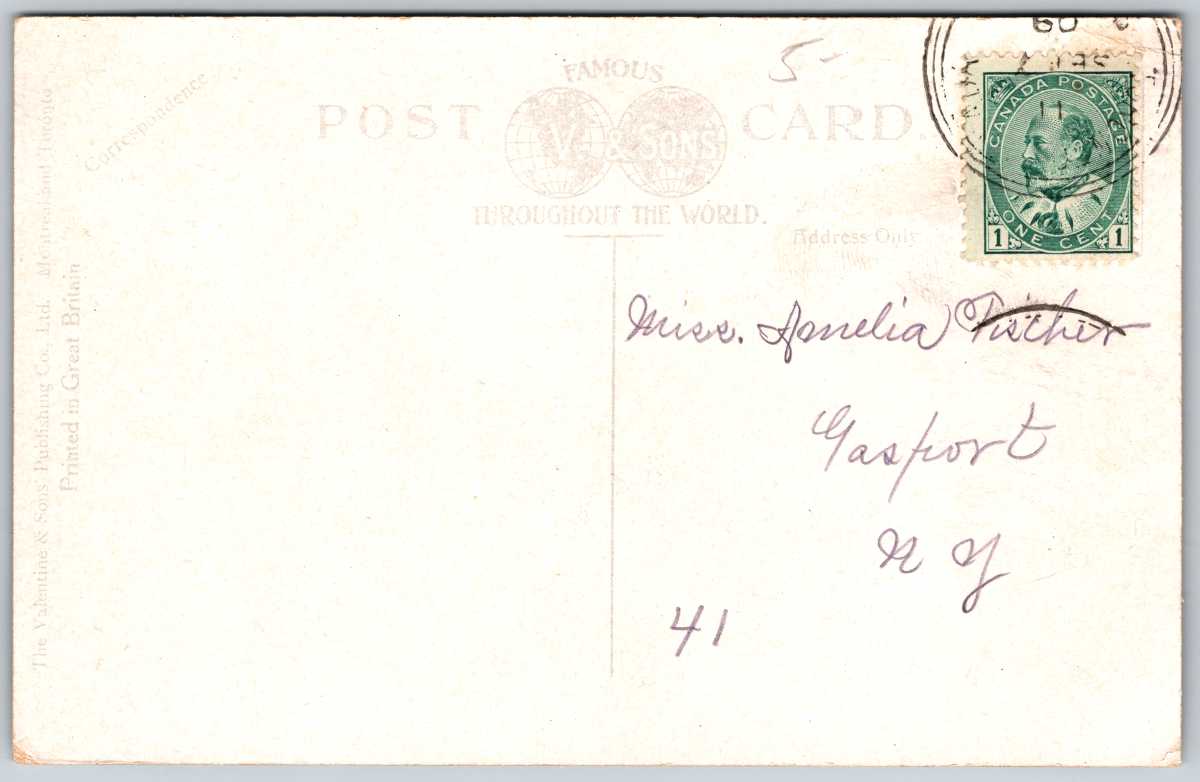 5-
FAMOUS
POST CARD.
V. & SONS
THROUGHOUT THE WORLD.
Correspondence
Address Only
The Valentine & Sons' Publishing Co., Ltd. Montreal and Toronto
Printed in Great Britain
09
SE 7
11
CANADA POSTAGE
ONE CENT
1 1
Miss. Amelia Fischer
Gasport
N Y
41